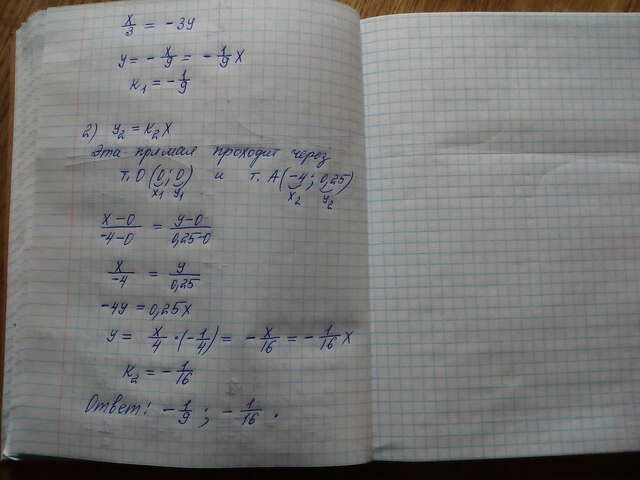 x/3 = -3y
y = -x/9 = -1/9 x
K₁ = -1/9
2) y₂ = K₂x
Эта прямая проходит через
т. O (0; 0) и т. A (-4; 0,25)
x₁ y₁ x₂ y₂
x-0/-4-0 = y-0/0,25-0
x/-4 = y/0,25
-4y = 0,25x
y = x/4 · (-1/4) = -x/16 = -1/16 x
K₂ = -1/16
Ответ: -1/9 ; -1/16 .